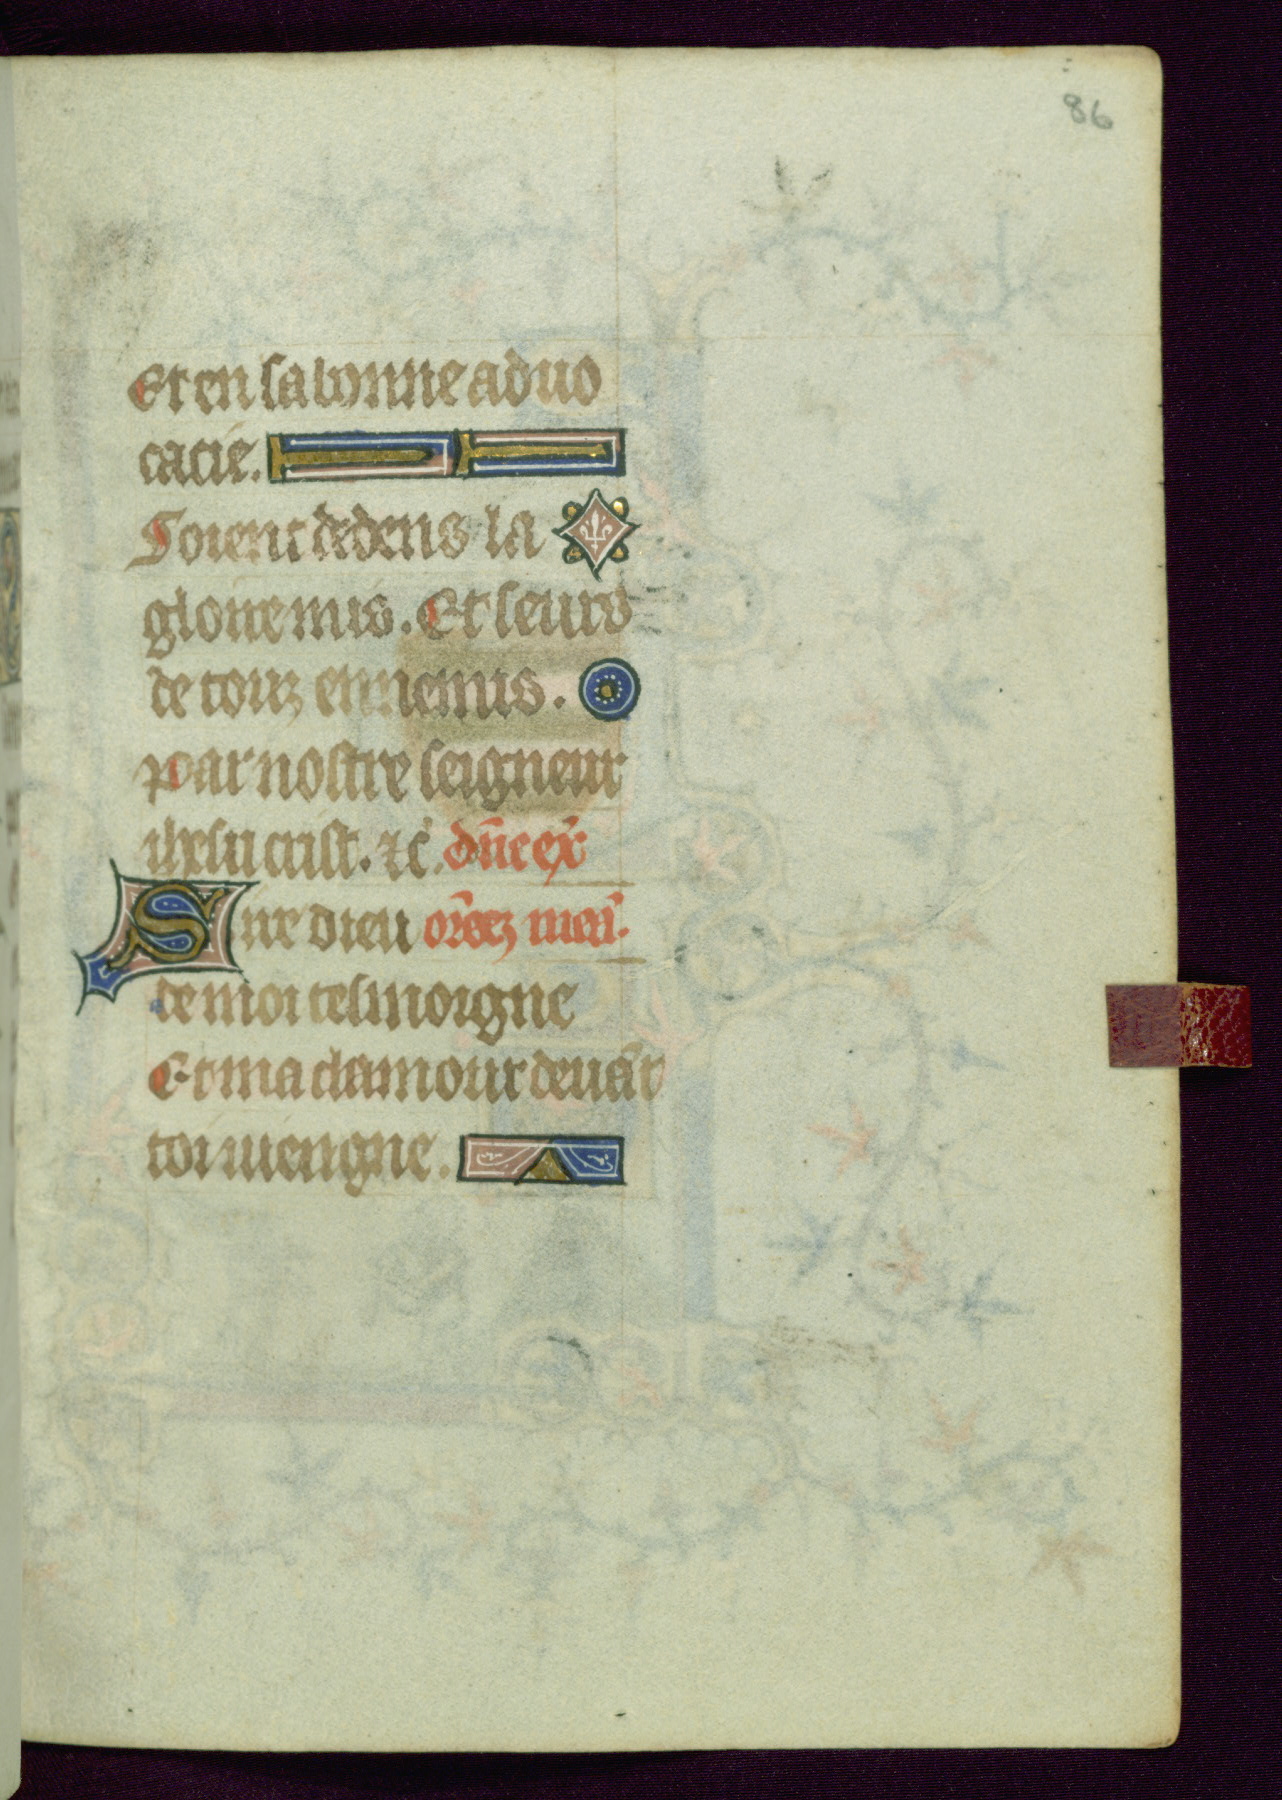 86
Et en sa bonne aduo
cacie.
Soient dedens la
gloire mis. Et seurs
de touz ennemis.
par nostre seigneur
ihesu crist. ⁊c̃. dñe ex̃
Sire dieu
de moi tesmoigne
Et ma clamour deuãt
toi uiengne.